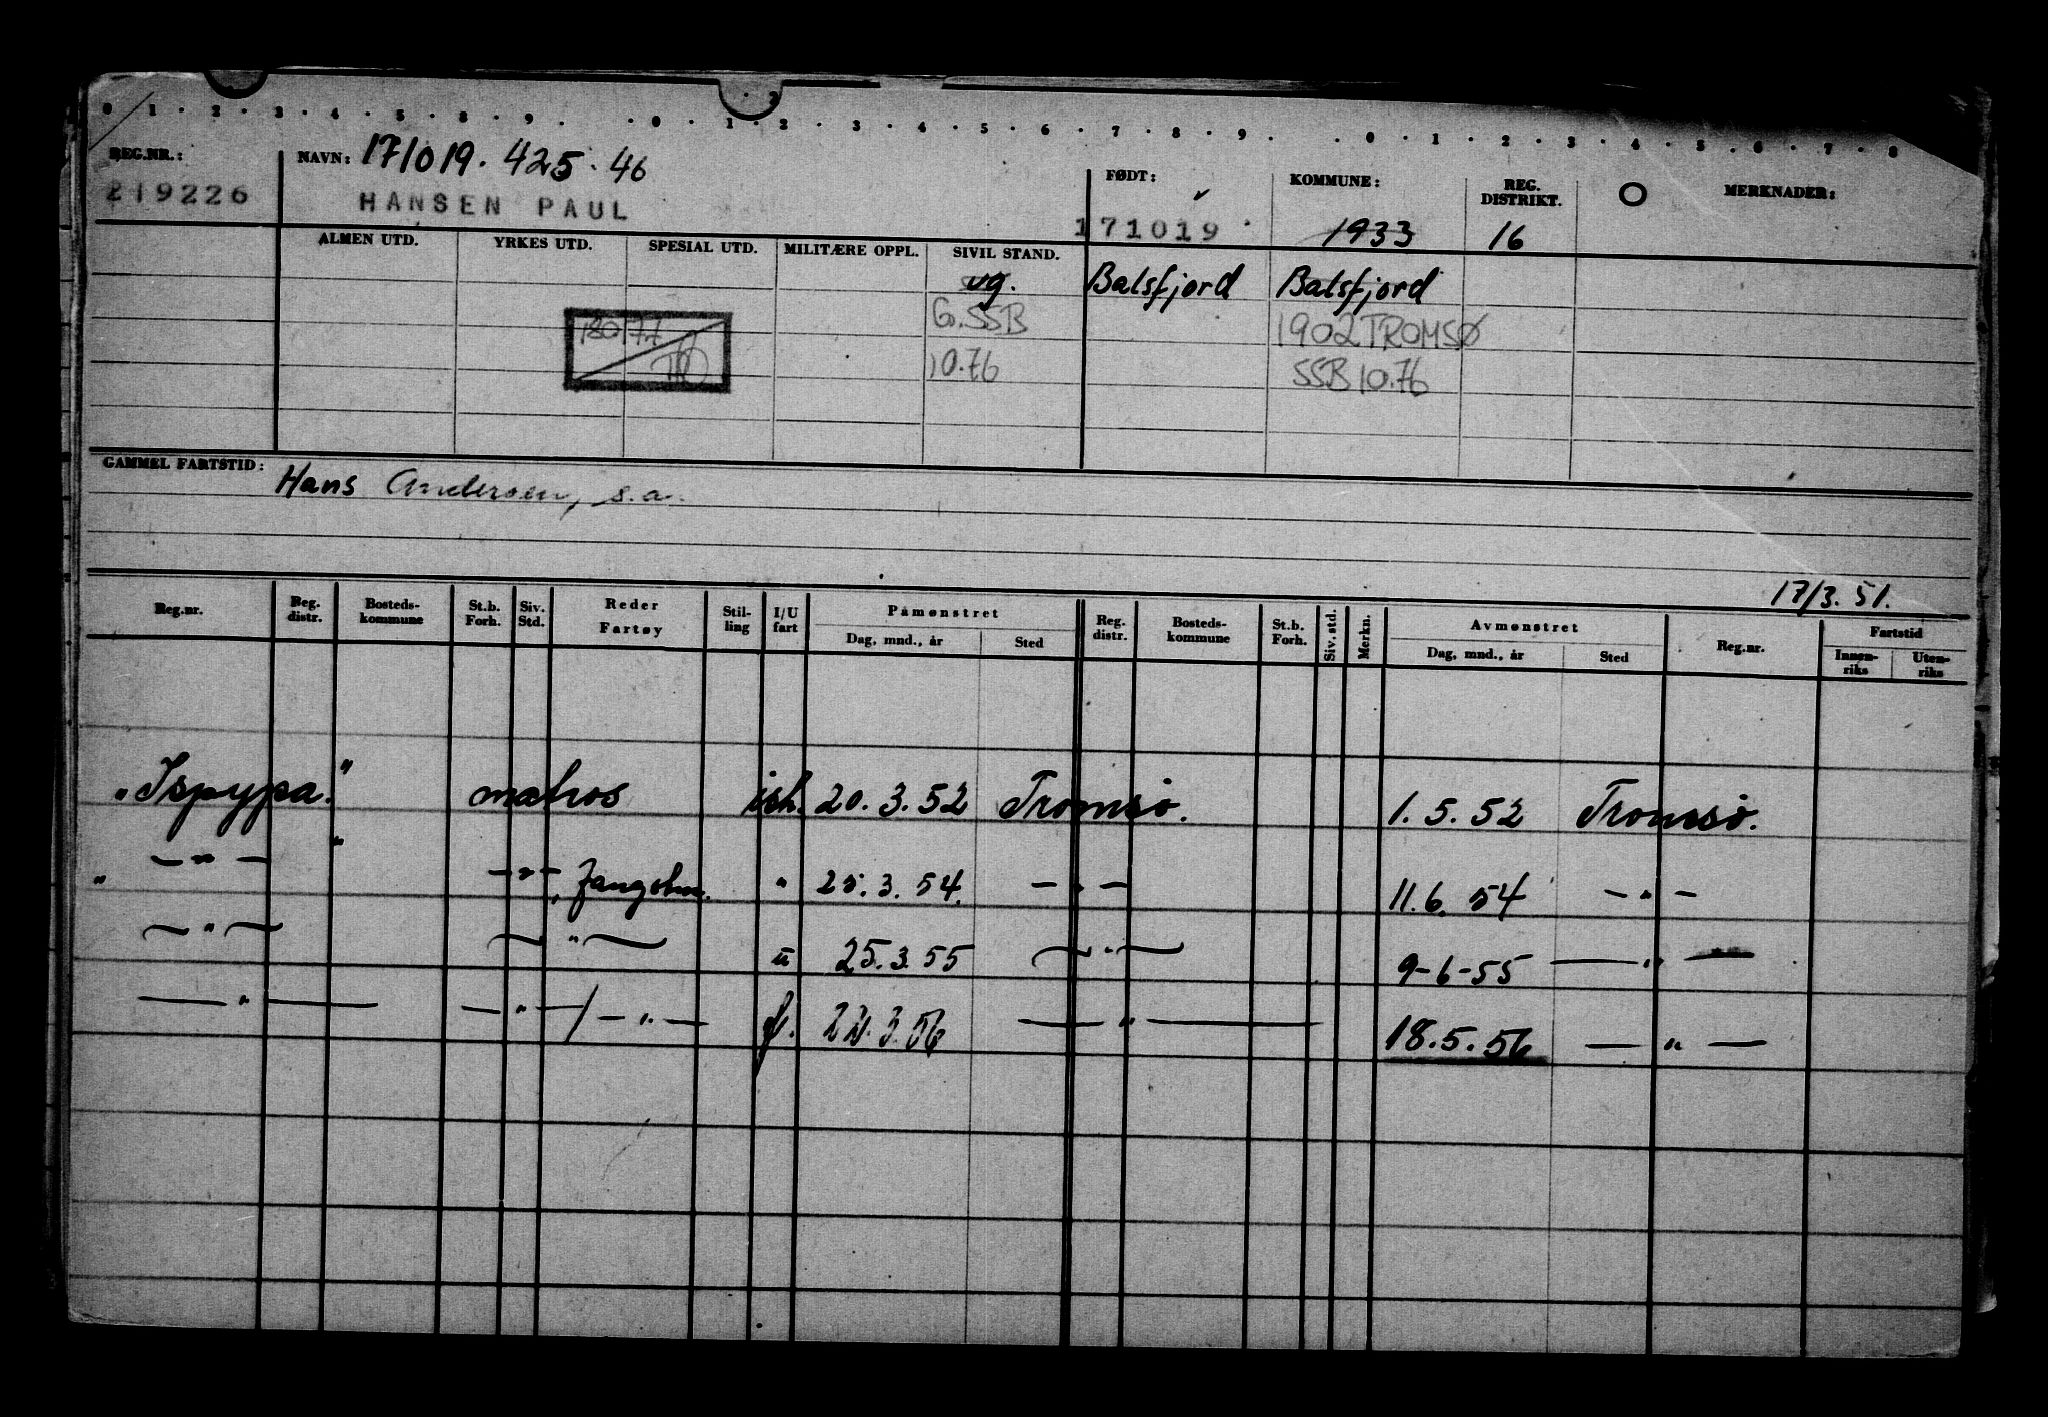 0 · 1 · 2 · 3 · 4 · 5 · 8 · 9 · · 0 · 1 · 2 · 3 · 4 · 5 · 6 · 7 · 8 · 9 · · 0 · 1 · 2 · 3 · 4 · 5 · 6 · 7 · 8
REG.NR.: NAVN: 171019. 425. 46 FØDT: KOMMUNE: REG. DISTRIKT. O MERKNADER:
219226 HANSEN PAUL 171019 1933 16
ALMEN UTD. YRKES UTD. SPESIAL UTD. MILITÆRE OPPL. SIVIL STAND.
ug. Balsfjord Balsfjord
G.SSB 1902 TROMSØ
10.76 SSB 10.76
GAMMEL FARTSTID: Hans Andersen, s.a.
17/3.51.
Reg.nr. Reg. distr. Bosteds-kommune St.b. Forh. Siv. Std. Reder Fartøy Stil-ling I/U fart Påmønstret Reg. distr. Bosteds-kommune St.b. Forh. Siv. std. Merkn. Avmønstret Reg.nr. Fartstid
Dag, mnd., år Sted Dag, mnd., år Sted Innen-riks Uten-riks
"Ispypa." matros ish. 20.3.52 Tromsø. 1.5.52 Tromsø.
" — " — " — " — " 25.3.54. — " — 11.6.54 — " —
— " — — " — " 25.3.55 — " — 9-6-55 — " —
— " — — " — / — " — f. 22.3.56 — " — 18.5.56 — " —